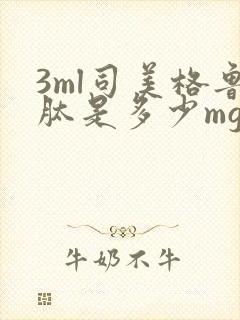 3ml司美格鲁
肽是多少mg
牛奶不牛